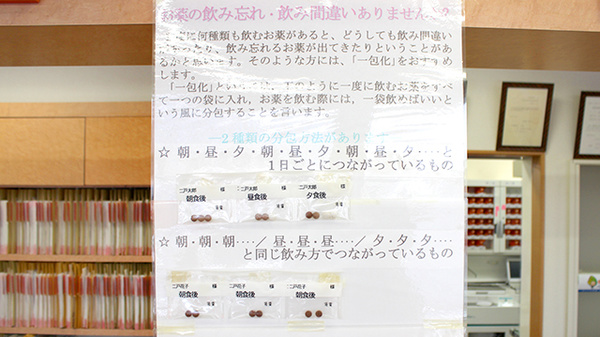 お薬の飲み忘れ・飲み間違いありませんか?
に何種類も飲むお薬があると、どうしても飲み間違い
飲み忘れるお薬が出てきたりということがあ
るかと思います。そのような方には、「一包化」をおすすめ
します。
「一包化」といっ 下のように一度に飲むお薬をすべ
て一つの袋に入れ，お薬を飲む際には，一袋飲めばいいと
いう風に分包することを言います。
―2種類の分包方法があります―
☆ 朝・昼・夕・朝・昼・夕・朝・昼・夕‥‥と
1日ごとにつながっているもの
二戸太郎 様
朝食後
二戸太郎 様
昼食後
二戸太郎 様
夕食後
☆ 朝・朝・朝‥‥／ 昼・昼・昼‥‥／ 夕・夕・夕‥‥
と同じ飲み方でつながっているもの
二戸花子 様
朝食後
二戸花子 様
朝食後
二戸花子 様
朝食後